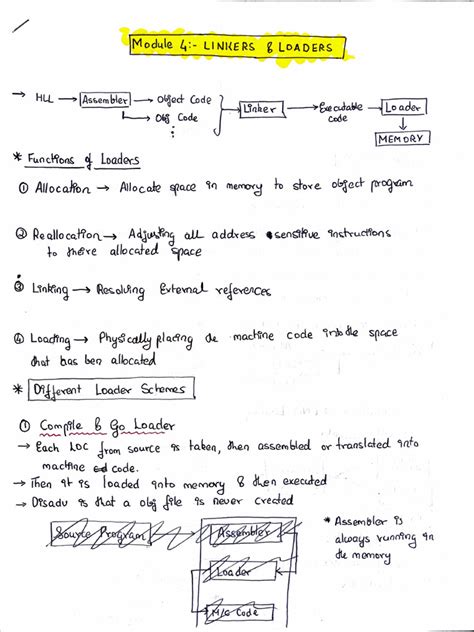 Module 4:- LINKERS & LOADERS
→ HLL → Assembler → Object Code
→ Obj Code
⋮
Linker → Executable code → Loader
MEMORY
* Functions of Loaders
① Allocation → Allocate space in memory to store object program
② Reallocation → Adjusting all address sensitive instructions
to there allocated space
③ Linking → Resolving External references
④ Loading → Physically placing de machine code into de space
that has ben allocated
* Different Loader Schemes
① Compile & Go Loader
→ Each LOC from source is taken, then assembled or translated into
machine code.
→ Then it is loaded into memory & then executed
→ Disadv is that a obj file is never created
Source Program
Assembler
Loader
M/C Code
* Assembler is
always running in
de memory